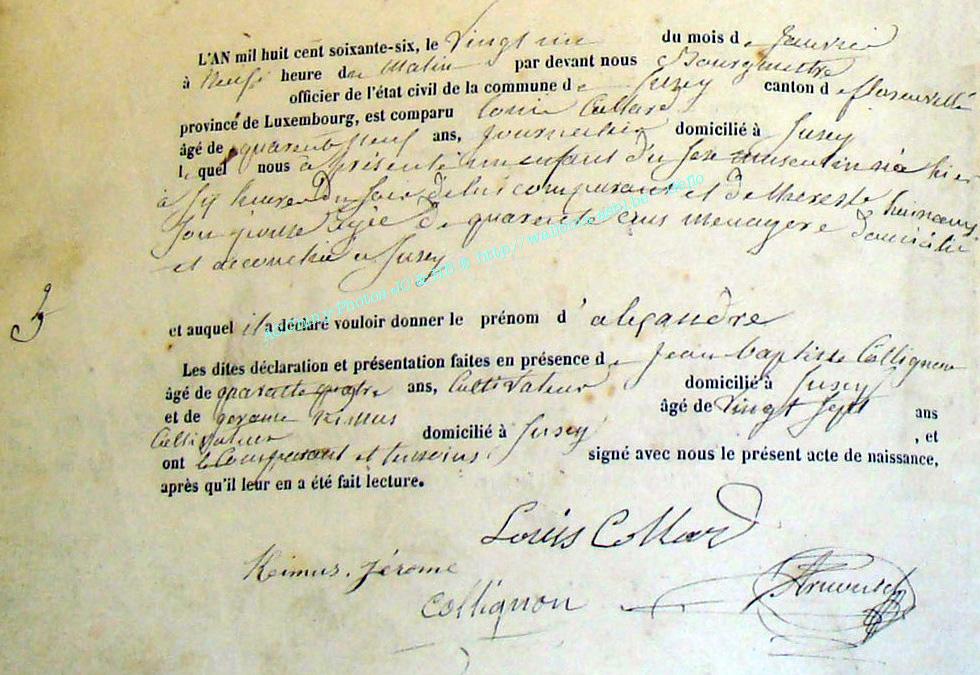 L'AN mil huit cent soixante-six, le Vingt un du mois de Janvier
à Neuf heure du Matin par devant nous Bourgmestre
officier de l'état civil de la commune de Jusey canton de florenville
province de Luxembourg, est comparu louis Collard
âgé de quarente Neuf ans, Journalier domicilié à Jusey
lequel nous à présenté un enfant du sexe masculin né hier
à six heure du soir de lui comparant et de therese
son epouse agée de quarente ans menagere domicilié
et accouchée à Jusey
3
et auquel il a déclaré vouloir donner le prénom d' alexandre
Les dites déclaration et présentation faites en présence de Jean baptiste Collignon
âgé de quarante quatre ans, Cultivateur domicilié à Jusey
et de gerome Reimus âgé de Vingt Sept ans
Cultivateur domicilié à Jusey , et
ont le Comparant et temoins signé avec nous le présent acte de naissance,
après qu'il leur en a été fait lecture.
Louis Collard
Reimus. Jérome
Collignon
http://wallonia.asbl.be